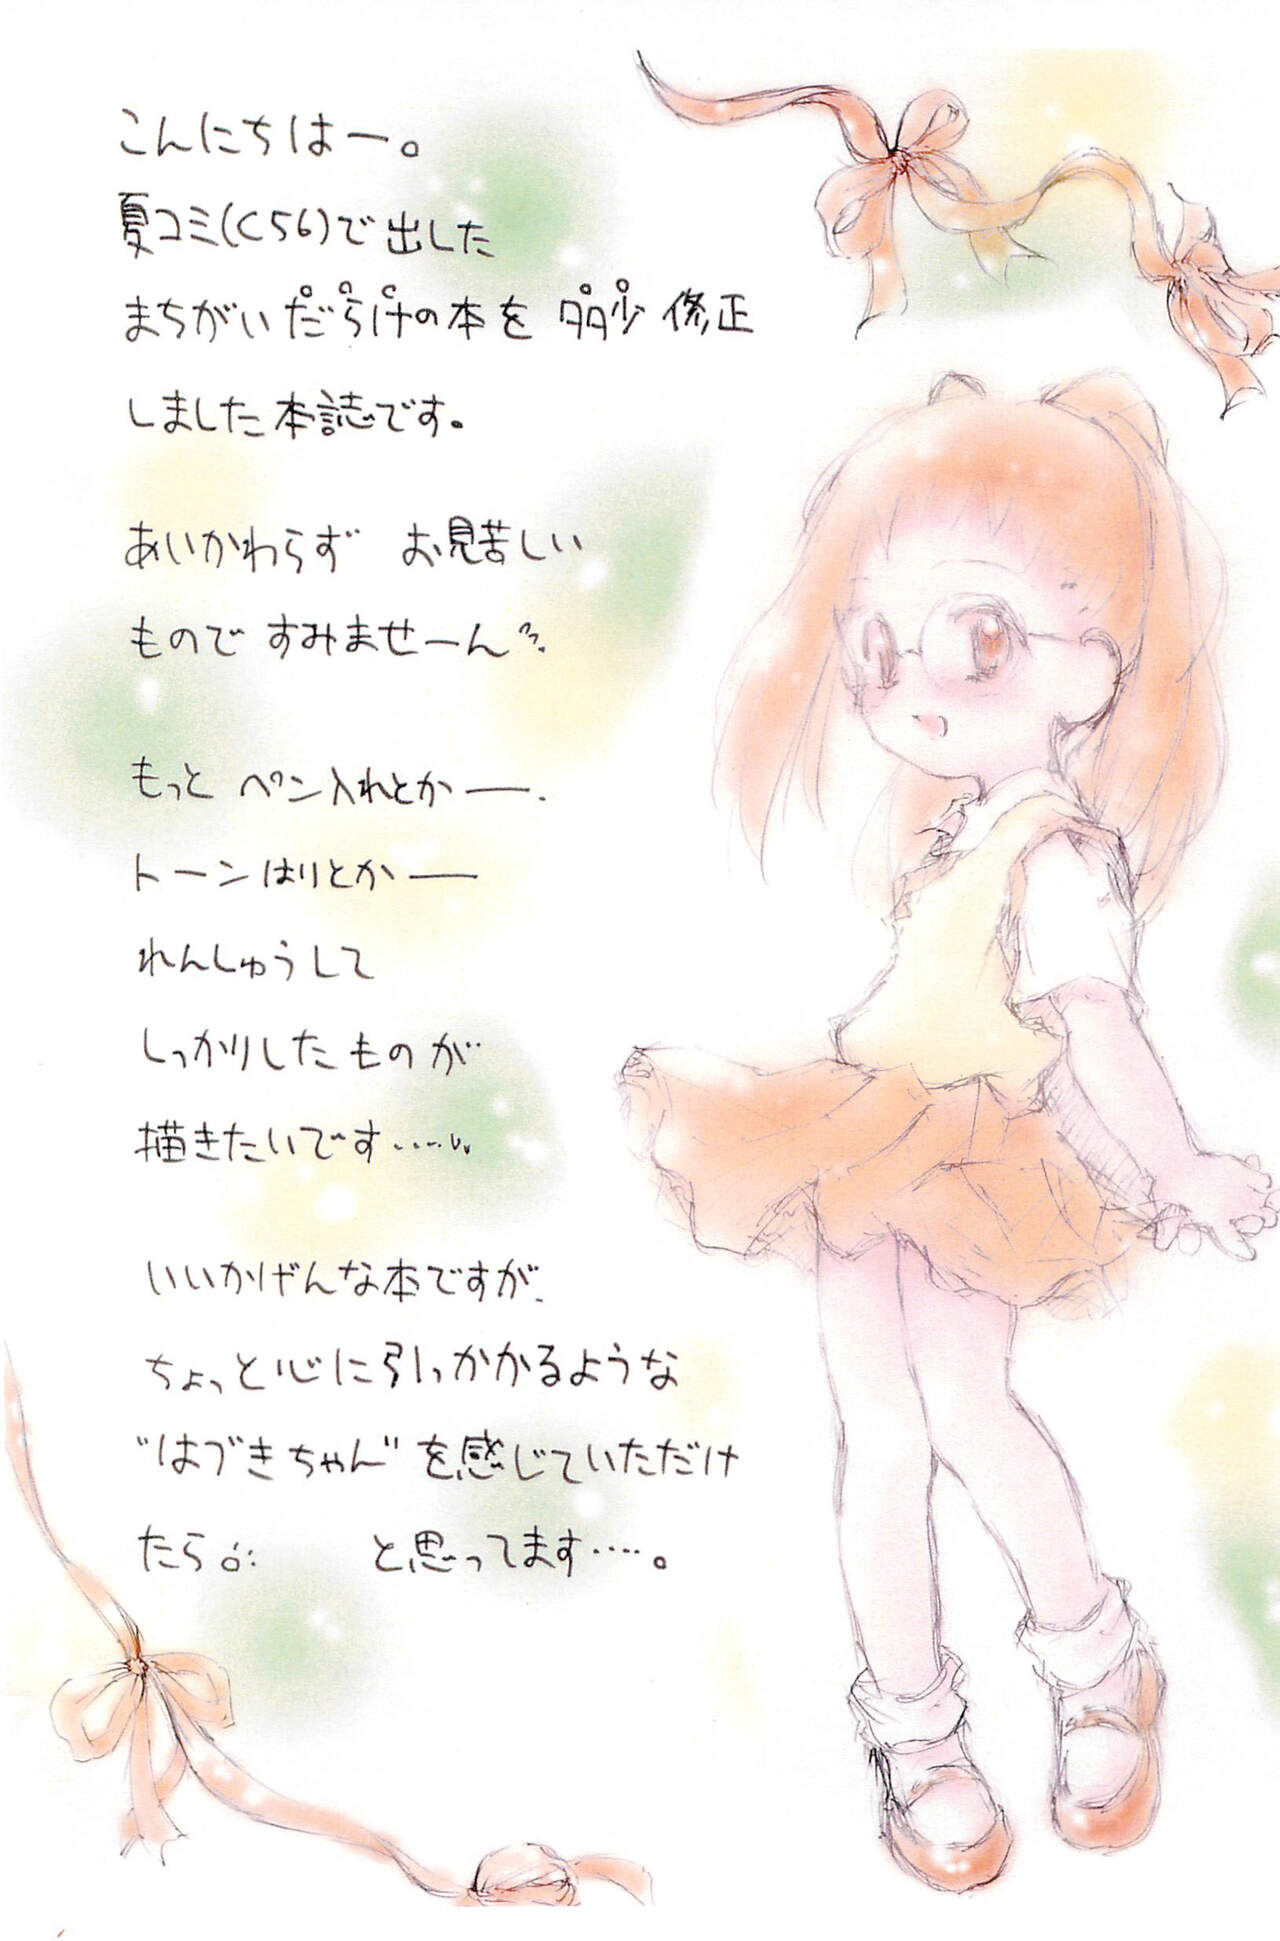 こんにちはー。
夏コミ(C56)で出した
まちがいだらけの本を 多少 修正
しました本誌です。
あいかわらず お見苦しい
もので すみませーん
もっと ペン入れとかー.
トーンはりとかー
れんしゅうして
しっかりしたものが
描きたいです……
いいかげんな本ですが、
ちょっと心に引っかかるような
"はづきちゃん"を感じていただけ
たら と思ってます……。